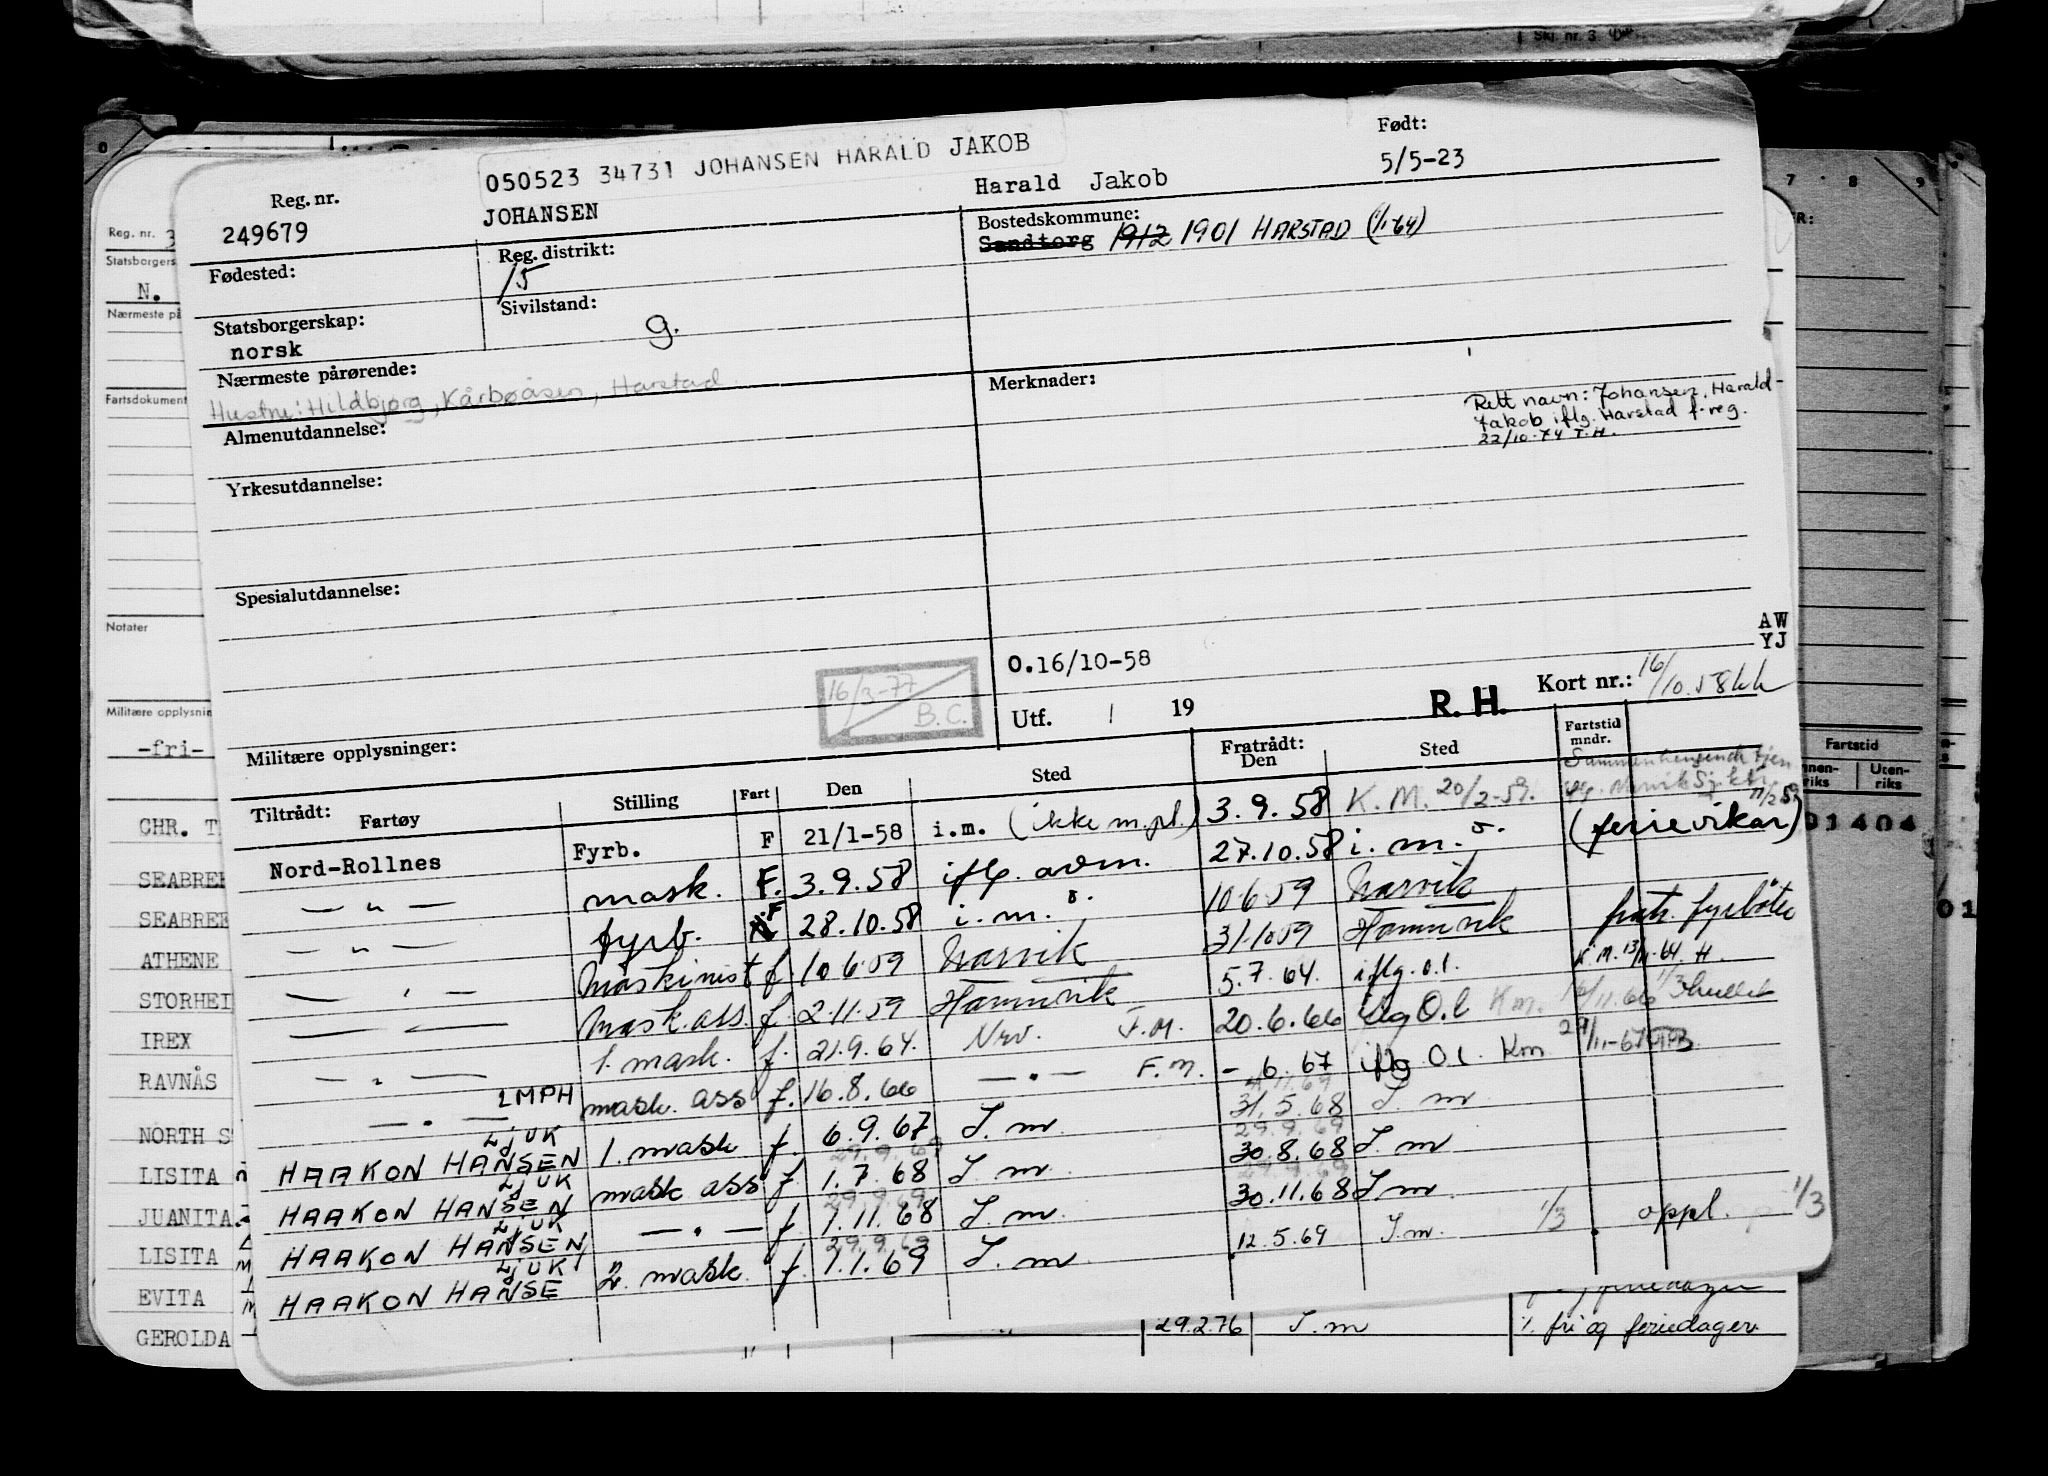 Skj. nr. 3
050523 34731 JOHANSEN HARALD JAKOB
Født:
5/5-23
Reg. nr.
249679
JOHANSEN
Harald Jakob
Fødested:
Reg. distrikt:
15
Bostedskommune:
Sandtorg 1912 1901 HARSTAD (1/1-64)
Statsborgerskap:
norsk
Sivilstand:
g.
Nærmeste pårørende:
Hustru: Hildbjørg, Kårbøåsen, Harstad
Merknader:
Rett navn: Johansen, Harald-
Jakob iflg. Harstad f-reg.
22/10-74 T.H.
Almenutdannelse:
Yrkesutdannelse:
Spesialutdannelse:
AW
YJ
O.16/10-58
16/3-77
B.C.
Utf. / 19
R. H.
Kort nr.: 16/10.58 kk
Militære opplysninger:
Tiltrådt: Fartøy Stilling Fart Den Sted Fratrådt: Den Sted Fartstid mndr.
Nord-Rollnes Fyrb. F 21/1-58 i.m. (ikke m.pl.) 3.9.58 K.M. 20/2-59.
— " — mask. F. 3.9.58 iflg. avm. 27.10.58 i.m. (ferievikar)
— " — fyrb. F 28.10.58 i.m. 10.6.59 Narvik
— " — Maskinist f. 10.6.59 Narvik 31.10.59 Hamnvik fratr. fyrbøter
— " — Mask.ass. f. 2.11.59 Hamnvik 5.7.64. iflg. o.l. K.M. 13/11-64. H.
— " — 1. mask. f. 21.9.64. Nrv. F.M. 20.6.66 iflg O.l Km. 16/11.66
— " — mask. ass f. 16.8.66 — " — F.M. - 6.67 iflg O.l. Km 29/11-67
HAAKON HANSEN LMPH 1. mask f. 6.9.67 I.m 31.5.68 I.m
HAAKON HANSEN LJUK mask ass f. 1.7.68 I.m 30.8.68 I.m
HAAKON HANSEN LJUK — " — f. 1.11.68 I.m 30.11.68 I.m
HAAKON HANSE LJUK 2. mask. f. 1.1.69 I.m 12.5.69 I.m. 1/3 oppl. 1/3
29.2.76 I.m fri og feriedager
Reg. nr. 3
Statsborgers
N.
Nærmeste på
Fartsdokument
Notater
Militære opplysnin
-fri-
CHR. T
SEABREE
SEABREE
ATHENE
STORHEI
IREX
RAVNÅS
NORTH S
LISITA
JUANITA
LISITA
EVITA
GEROLDA
7 8 9
Fartstid
Innen-
riks
Uten-
riks
01404
01